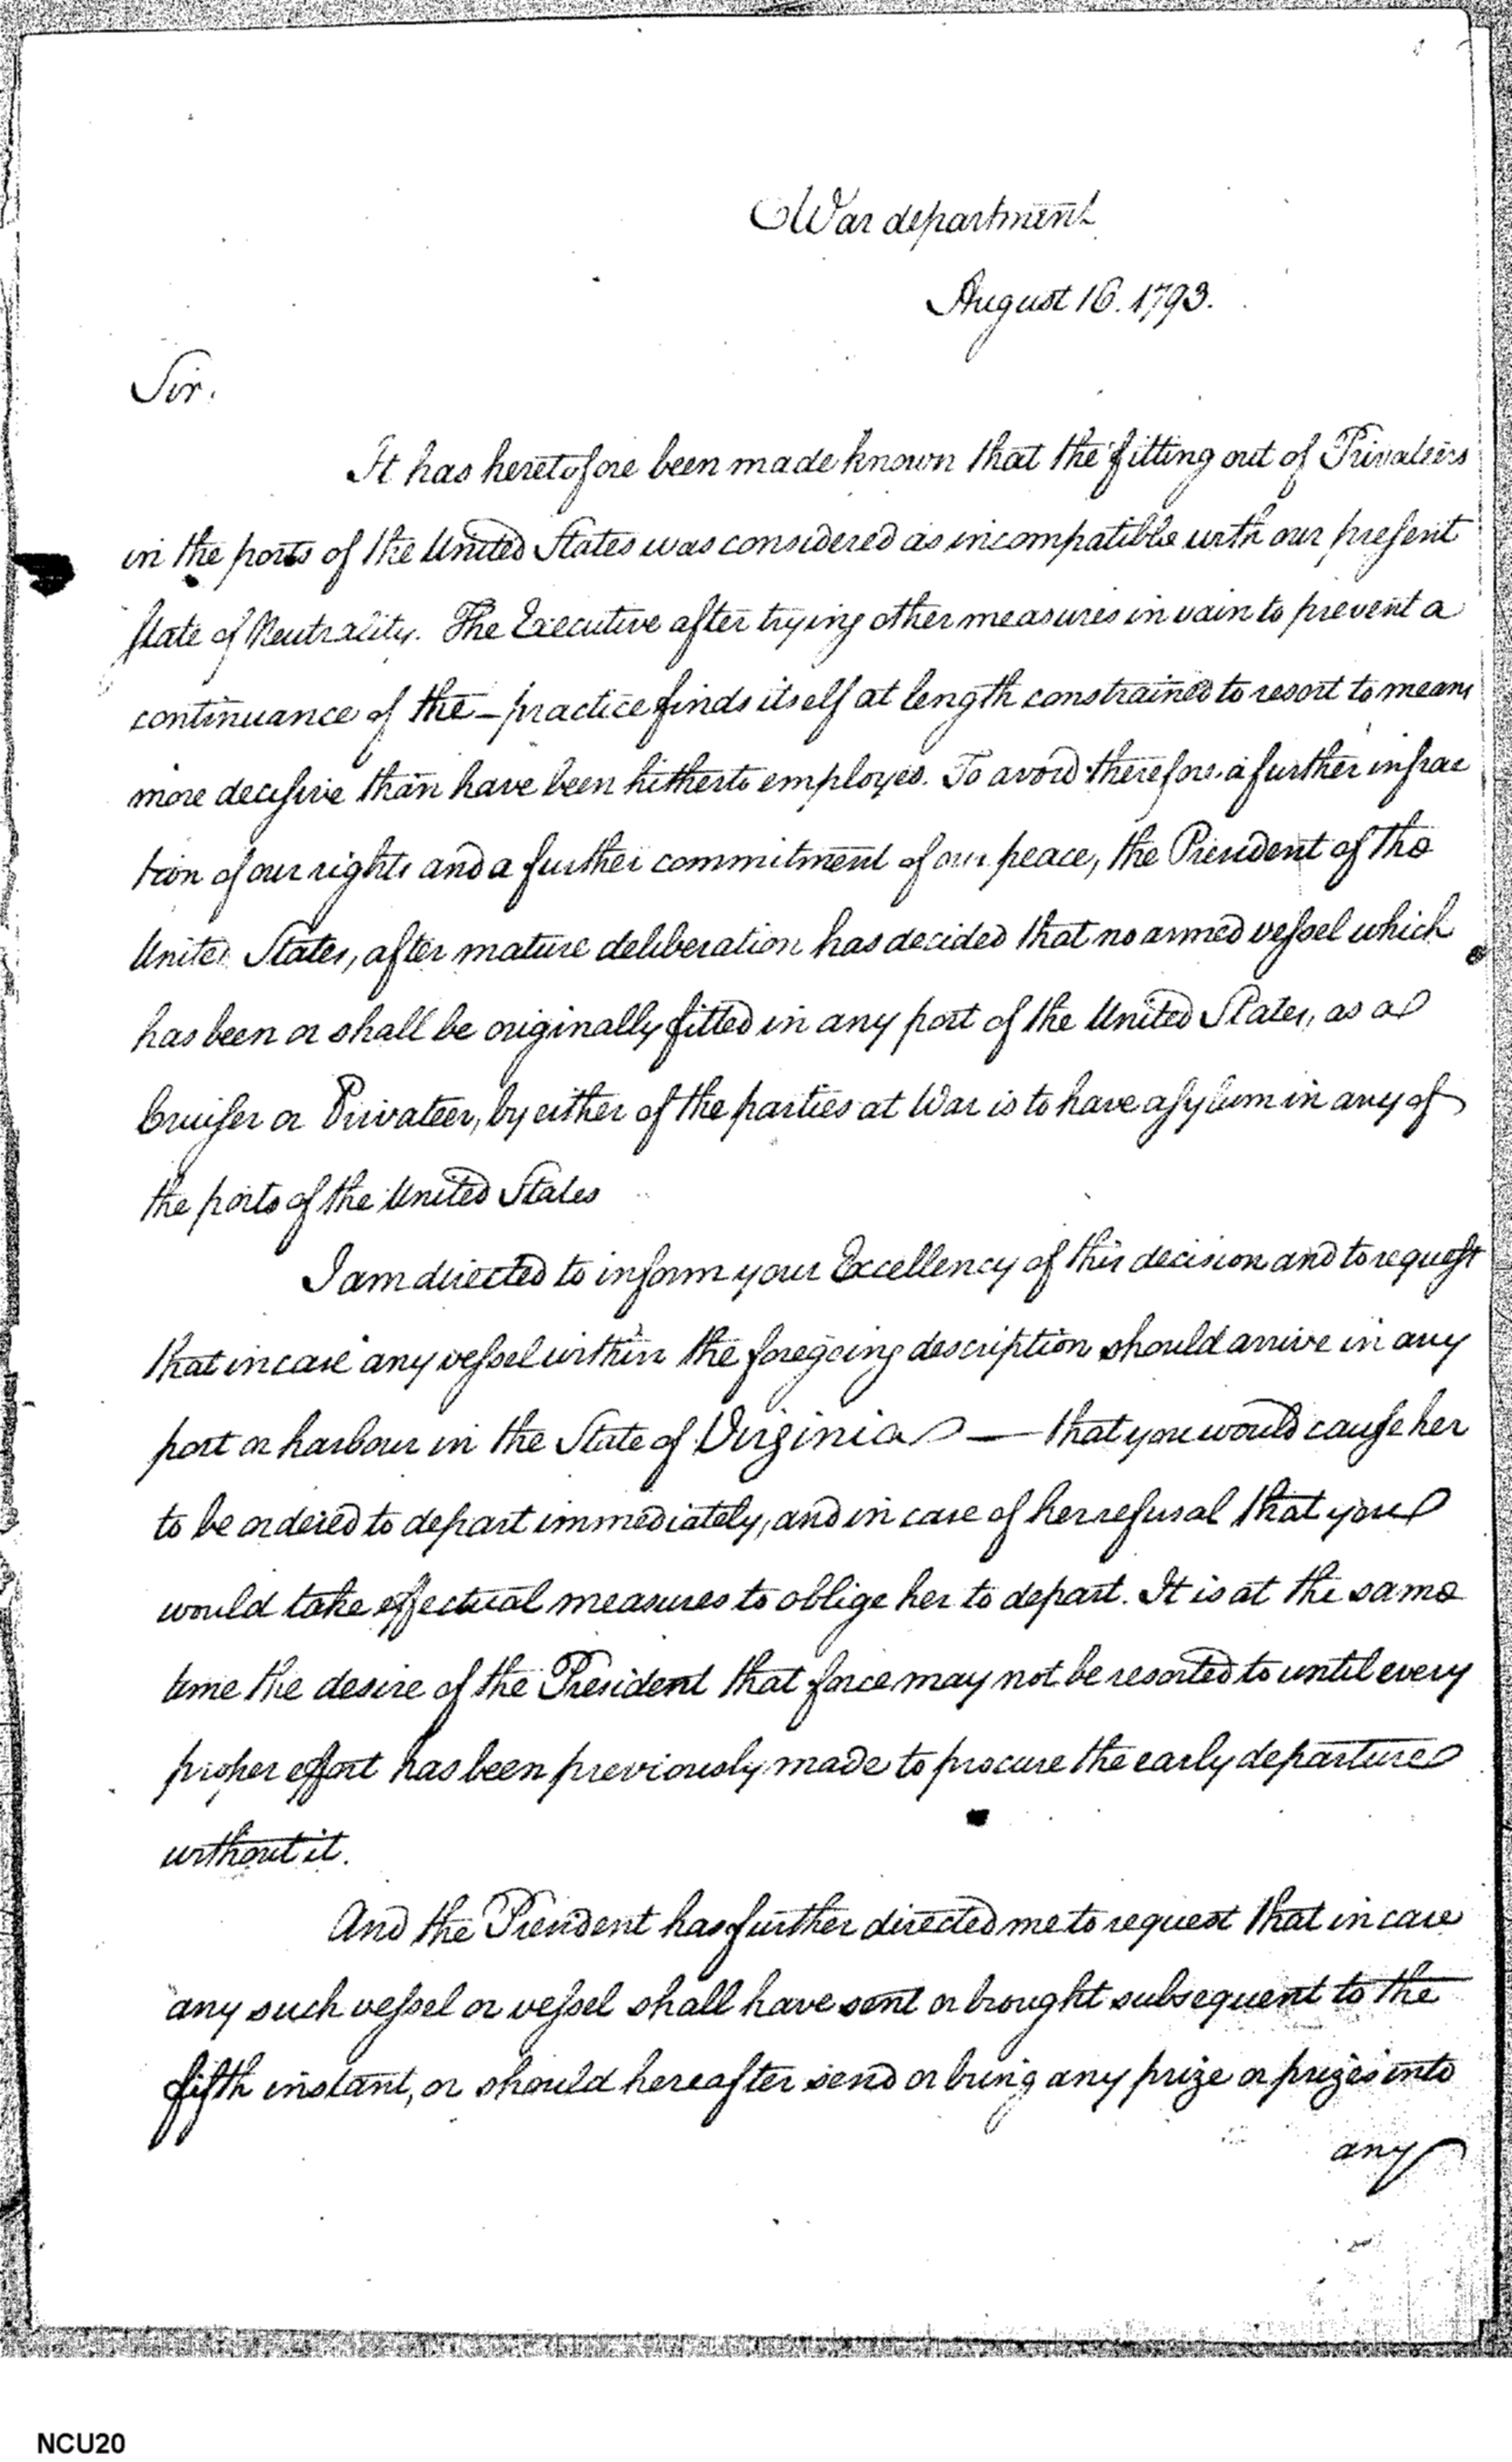 War department
August 16. 1793.
Sir.
It has heretofore been made known that the fitting out of Privateers
in the ports of the United States was considered as incompatible with our present
state of Neutrality. The Executive after trying other measures in vain to prevent a
continuance of the – practice finds itself at length constrained to resort to means
more decisive than have been hitherto employed. To avoid therefore a further infrac
tion of our rights and a further commitment of our peace, the President of the
United States, after mature deliberation has decided that no armed vessel which
has been or shall be originally fitted in any port of the United States, as a
Cruiser or Privateer, by either of the parties at War is to have asylum in any of
the ports of the United States
I am directed to inform your Excellency of this decision and to request
that in case any vessel within the foregoing description should arrive in any
port or harbour in the State of Virginia — that you would cause her
to be ordered to depart immediately, and in case of her refusal that you
would take effectual measures to oblige her to depart. It is at the same
time the desire of the President that force may not be resorted to until every
proper effort has been previously made to procure the early departure
without it.
And the President has further directed me to request that in case
any such vessel or vessel shall have sent or brought subsequent to the
fifth instant, or should hereafter send or bring any prize or prizes into
any
NCU20